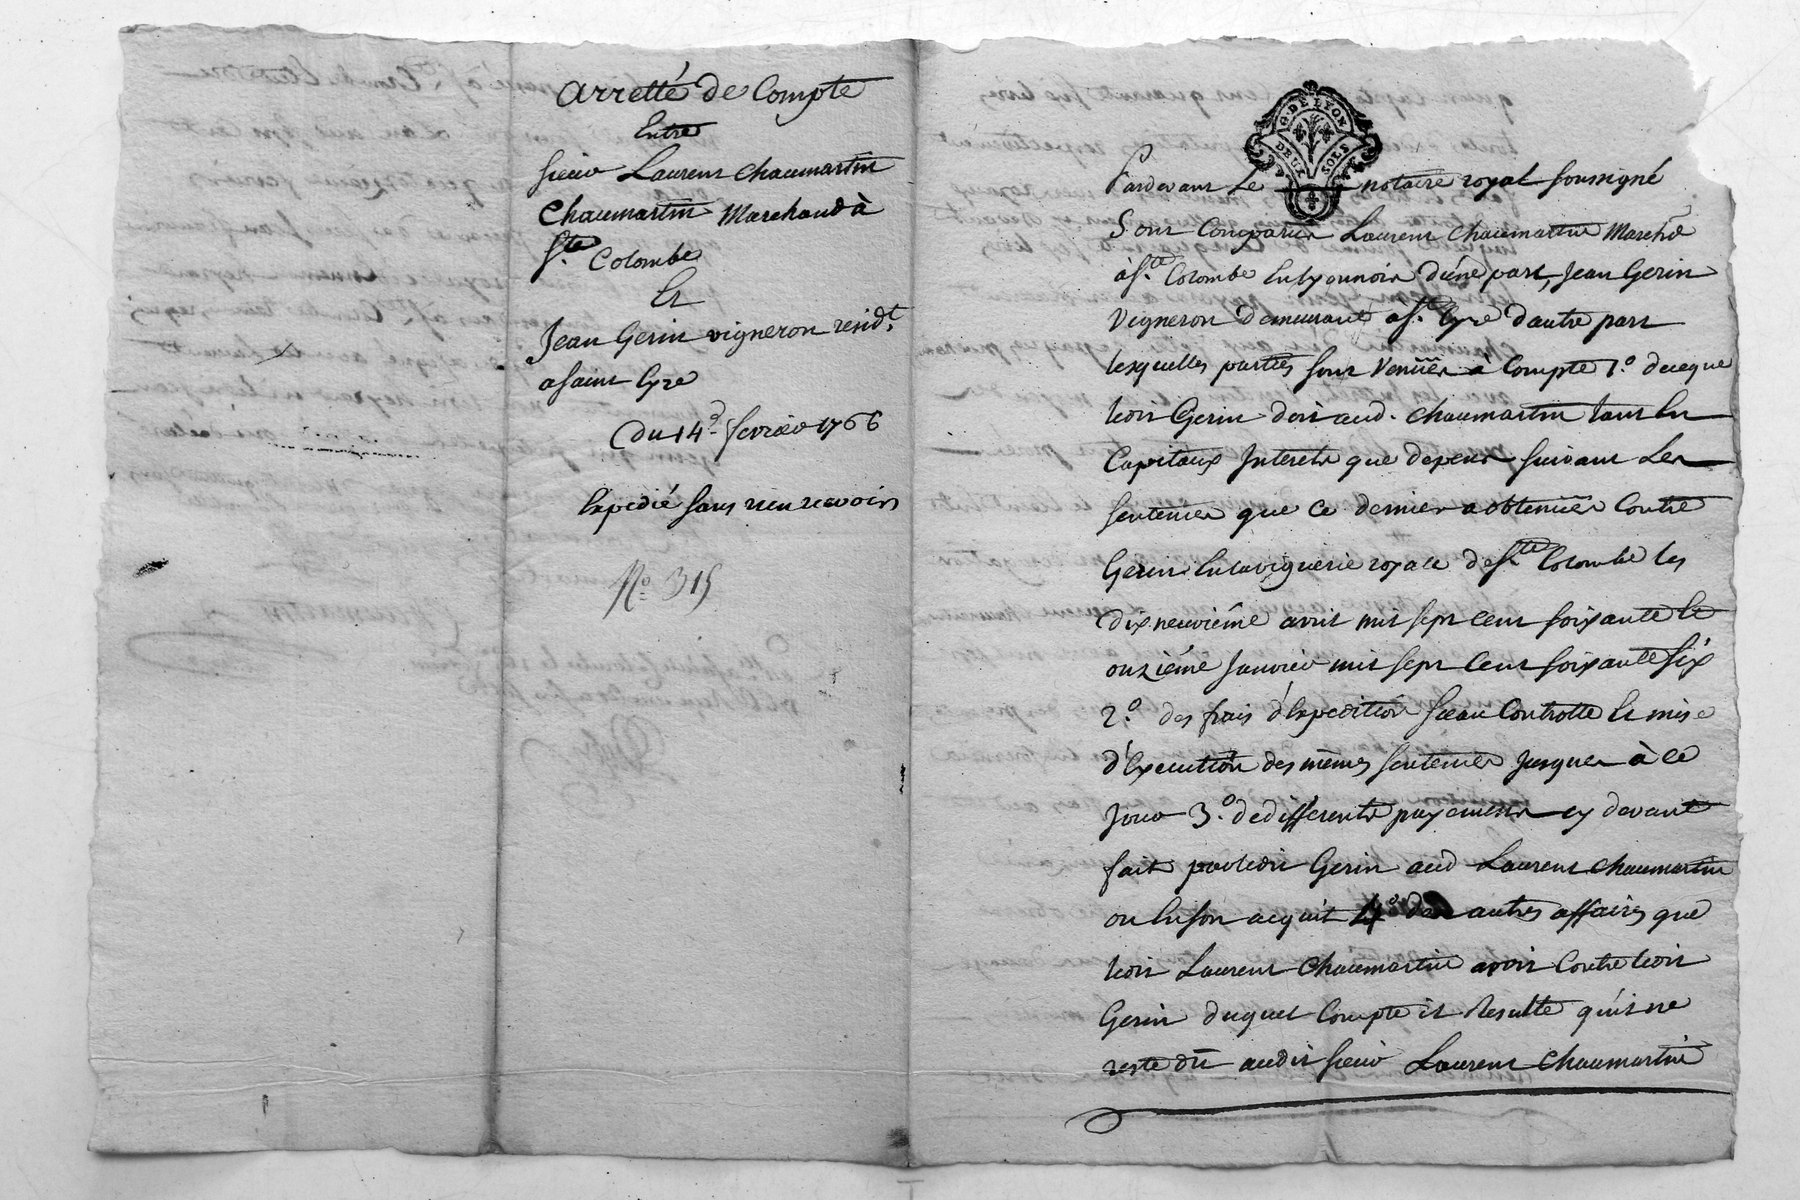 Arretté de Compte
Entre
sieur Laurent Chaumartin
Chaumartin Marchand à
Ste Colombe
Et
Jean Gerin vigneron resid.t
a saint Cyre
Du 14e fevrier 1766
Expedié sans rien recevoir
No. 315
G. DE LYON
DEUX SOLS
Pardevant Le notaire royal soussigné
Sont Comparus Laurent Chaumartin Marchd
à Ste Colombe en lyonnois d'une part, Jean Gerin
Vigneron demeurant à St. Cyre d'autre part
lesquelles parties sont Venües à Compte 1.o de ce que
ledit Gerin doit aud. Chaumartin tant en
Capitaux Interets que depens suivant Les
sentences que ce dernier a obtenües Contre
Gerin en la viguerie royale de Ste Colombe les
dix neuviéme avril mil sept cent soixante et
onziéme Janvier mil sept Cent soixante six
2.o des frais d'Expedition sceau Controlle et mise
d'Execution des mêmes sentences Jusques à ce
Jour 3.o de differents payements cy devant
fait par ledit Gerin aud Laurent Chaumartin
ou en son acquit 4.o des autres affaires que
ledit Laurent Chaumartin avoit Contre ledit
Gerin duquel Compte il Resulte qu'il ne
reste dû audit sieur Laurent Chaumartin